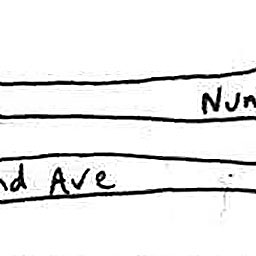 Nun
nd Ave